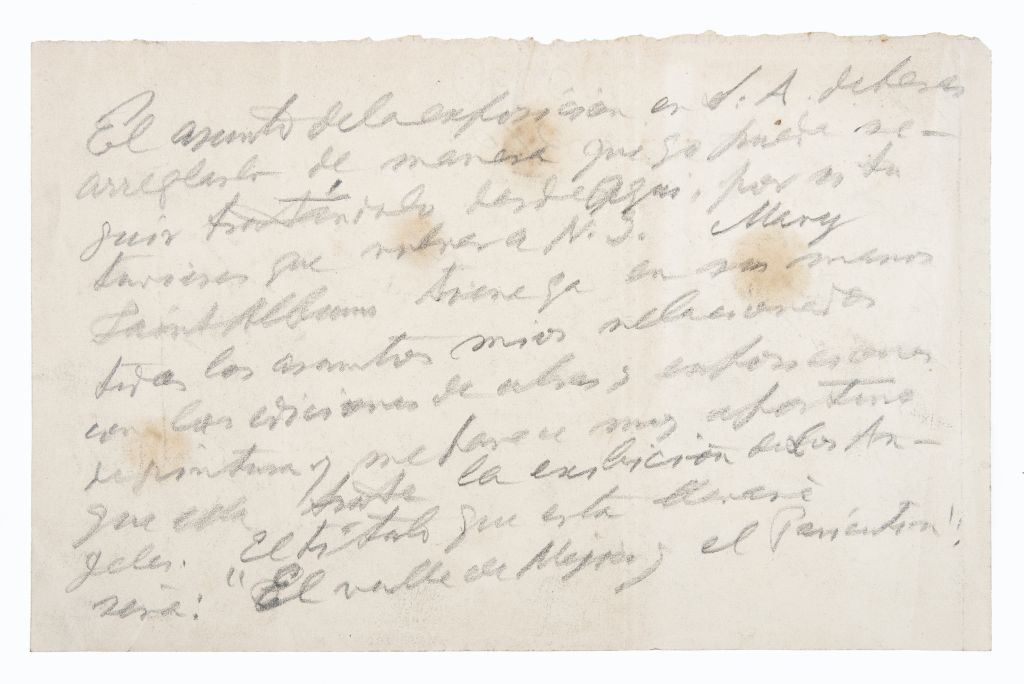 El asunto de la exposicion en L. A. deberas
arreglarlo de manera que yo pueda se-
guir tratándolo desde Aqui, por si tu
tuvieses que volver a N. Y. Mary
Saint Albans tiene ya en sus manos
todos los asuntos mios relacionados
con las ediciones de obras y exposiciones
de pintura y me parece muy oportuno
que ella trate la exibición de Los An-
geles. El título que esta llevará
será: "El valle de Mejico y el Paricutin".